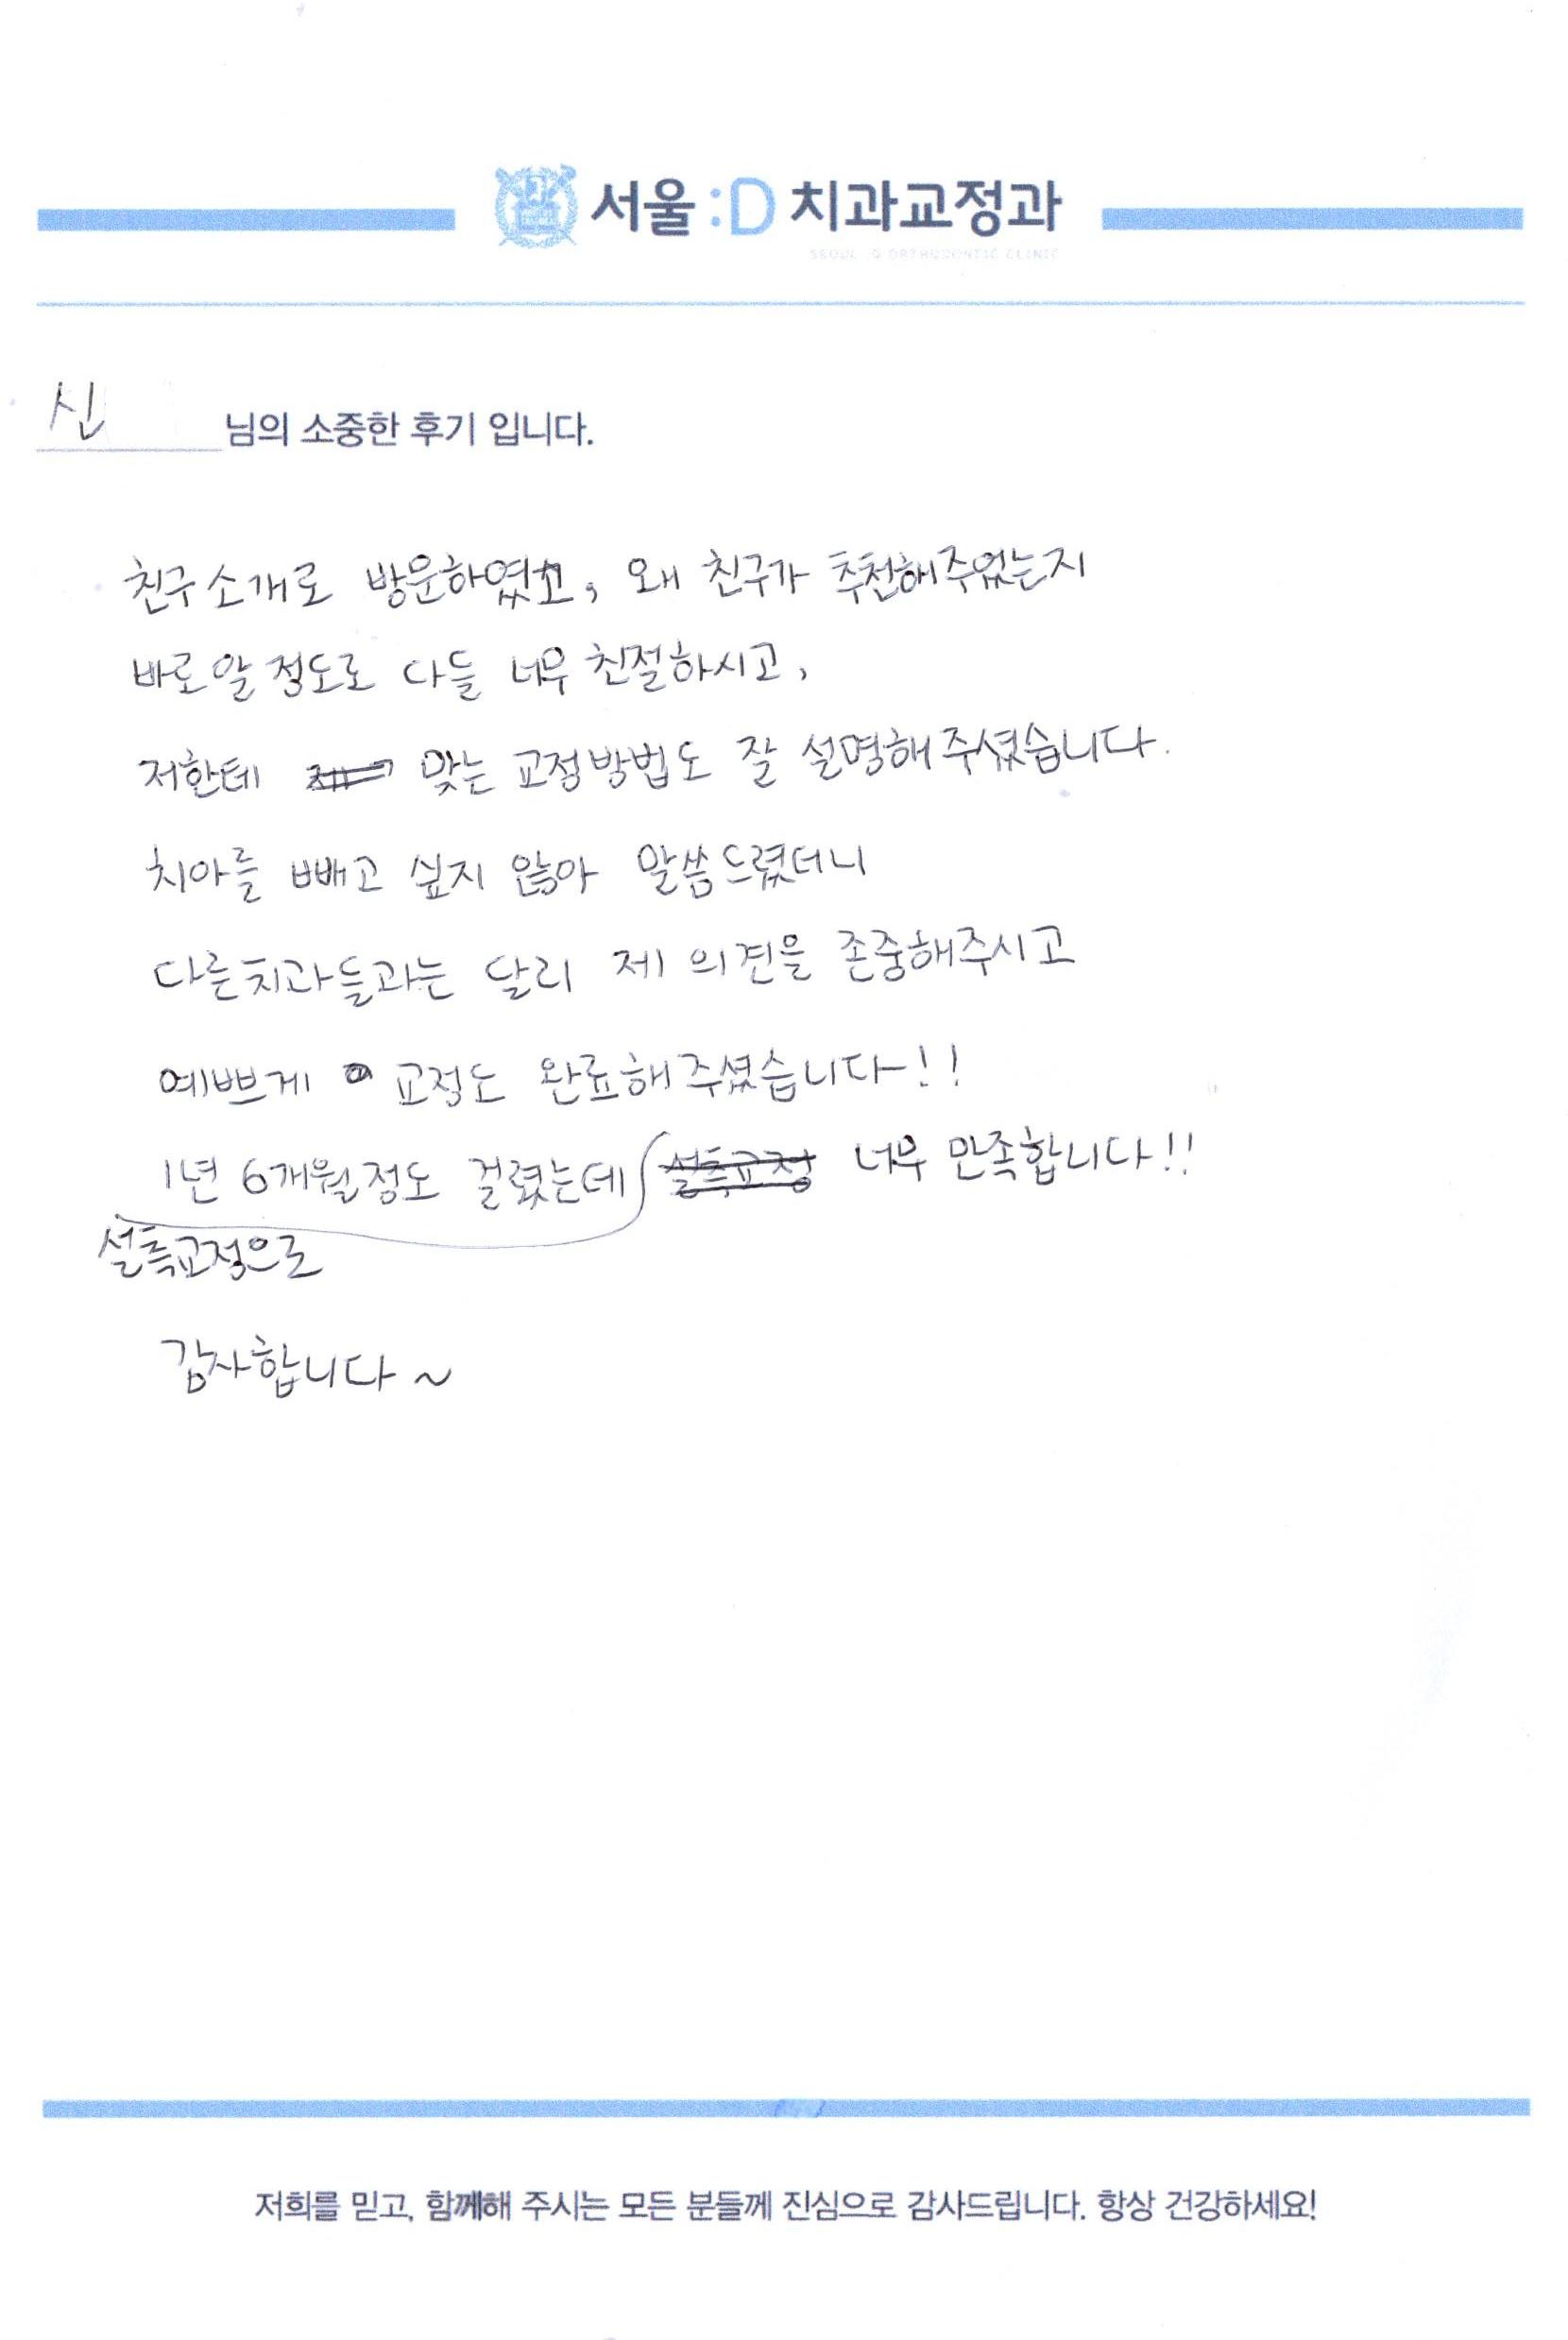 서울:D 치과교정과
SEOUL :D ORTHODONTIC CLINIC
신 님의 소중한 후기 입니다.
친구 소개로 방문하였고, 왜 친구가 추천해주었는지
바로 알 정도로 다들 너무 친절하시고,
저한테 맞는 교정방법도 잘 설명해주셨습니다.
치아를 빼고 싶지 않아 말씀드렸더니
다른치과들과는 달리 제 의견을 존중해주시고
예쁘게 교정도 완료해주셨습니다!!
1년 6개월정도 걸렸는데 설측교정 너무 만족합니다!!
설측교정으로
감사합니다~
저희를 믿고, 함께해 주시는 모든 분들께 진심으로 감사드립니다. 항상 건강하세요!